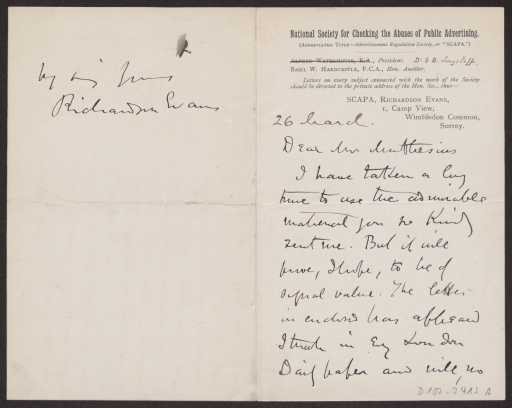 Richardson Evans
National Society for Checking the Abuses of Public Advertising.
(Abbreviated Title—Advertisement Regulation Society, or "SCAPA.")
Alfred Waterhouse, R.A., President.
Basil W. Hardcastle, F.C.A., Hon. Auditor.
Letters on every subject connected with the work of the Society
should be directed to the private address of the Hon. Sec., thus—
SCAPA, Richardson Evans,
1, Camp View,
Wimbledon Common,
Surrey.
26 March.
Dear Mr Muthesius
I have taken a long
time to use the admirable
material you so kindly
sent me. But it will
prove, I hope, to be of
signal value. The letter
I think in every London
Daily paper and will, no